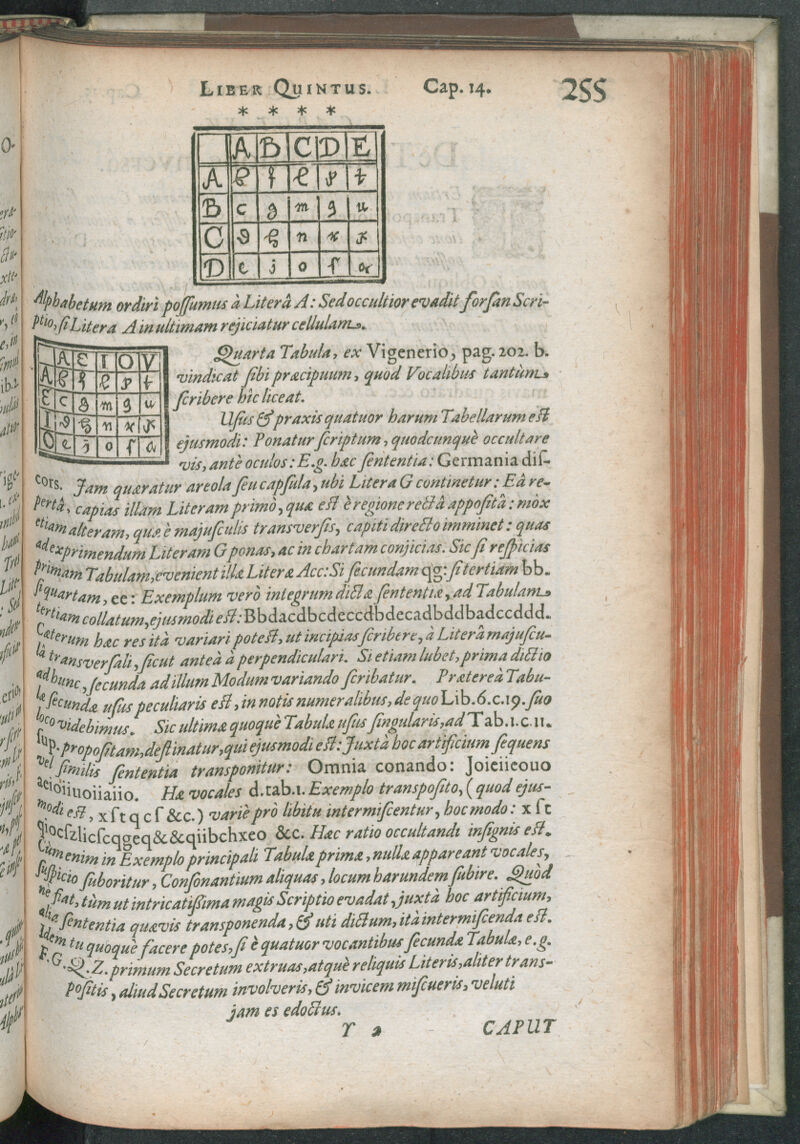 LIBER QUINTUS. Cap. 14. 255
* * * *
A B C D E
A
B c g m g u
C n
D e j o ſ
Alphabetum ordiri poſſumus à Literâ A: Sed occultior evadit forſan Scri-
ptio, ſi Litera A in ultimam rejiciatur cellulam.
A E I O V
A
E c g m g u
I n
O e j o ſ
Quarta Tabula, ex Vigenerio, pag. 202. b.
vindicat ſibi præcipuum, quod Vocalibus tantùm
ſcribere hîc liceat.
Uſus & praxis quatuor harum Tabellarum eſt
ejusmodi: Ponatur ſcriptum, quodcunquè occultare
vis, antè oculos: E.g. hæc ſententia: Germania diſ-
cors. Jam quæratur areola ſeu capſula, ubi Litera G continetur: Eâ re-
pertâ, capias illam Literam primò, quæ eſt è regione rectâ appoſita: mòx
etiam alteram, quæ è majuſculis transverſis, capiti directo imminet: quas
ad exprimendum Literam G ponas, ac in chartam conjicias. Sic ſi reſpicias
primam Tabulam, evenient illæ Literæ Acc: Si ſecundam qg: ſi tertiam bb.
ſi quartam, ee: Exemplum verò integrum dictæ ſententiæ, ad Tabulam
tertiam collatum, ejusmodi eſt: Bbdacdbcdeccdbdecadbddbadccddd.
Cæterum hæc res ità variari poteſt, ut incipias ſcribere, à Literâ majuſcu-
lâ transverſali, ſicut anteà à perpendiculari. Si etiam lubet, prima dictio
ad hunc, ſecunda ad illum Modum variando ſcribatur. Præterea Tabu-
læ ſecundæ uſus peculiaris eſt, in notis numeralibus, de quo Lib. 6. c. 19. ſuo
loco videbimus. Sic ultimæ quoquè Tabulæ uſus ſingularis, ad Tab. 1. c. 11.
ſup. propoſitam, deſtinatur, qui ejusmodi eſt: Juxtà hoc artificium ſequens
vel ſimilis ſententia transponitur: Omnia conando: Joieiieouo
aeioiiuoiiaiio. Hæ vocales d. tab. 1. Exemplo transpoſito, (quod ejus-
modi eſt, x ſ t q c ſ &c.) variè prò libitu intermiſcentur, hoc modo: x ſ t
qiocſzlicſcqgeq&&qiibchxeo &c. Hæc ratio occultandi inſignis eſt.
Cùm enim in Exemplo principali Tabulæ primæ, nullæ appareant vocales,
ſuſpicio ſuboritur, Conſonantium aliquas, locum harundem ſubire. Quòd
nè fiat, tùm ut intricatiſſima magis Scriptio evadat, juxtà hoc artificium,
alia ſententia quævis transponenda, & uti dictum, ità intermiſcenda eſt.
Idem tu quoquè facere potes, ſi è quatuor vocantibus ſecundæ Tabulæ, e.g.
F. G. Q. Z. primum Secretum extruas, atquè reliquis Literis, aliter trans-
poſitis, aliud Secretum involveris, & invicem miſcueris, veluti
jam es edoctus.
Y 2 CAPUT